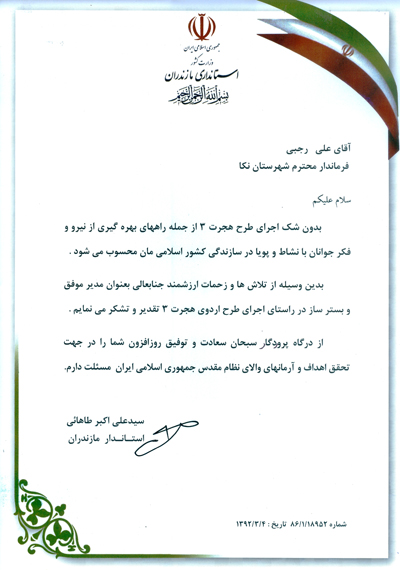 جمهوری اسلامی ایران
وزارت کشور
استانداری مازندران
بسم الله الرحمن الرحیم
آقای علی رجبی
فرماندار محترم شهرستان نکا
سلام علیکم
بدون شک اجرای طرح هجرت ۳ از جمله راههای بهره گیری از نیرو و
فکر جوانان با نشاط و پویا در سازندگی کشور اسلامی مان محسوب می شود .
بدین وسیله از تلاش ها و زحمات ارزشمند جنابعالی بعنوان مدیر موفق
و بستر ساز در راستای اجرای طرح اردوی هجرت ۳ تقدیر و تشکر می نمایم .
از درگاه پرودگار سبحان سعادت و توفیق روزافزون شما را در جهت
تحقق اهداف و آرمانهای والای نظام مقدس جمهوری اسلامی ایران مسئلت دارم.
سیدعلی اکبر طاهائی
استاندار مازندران
شماره ۸۶/۱/۱۸۹۵۲ تاریخ : ۱۳۹۲/۳/۴